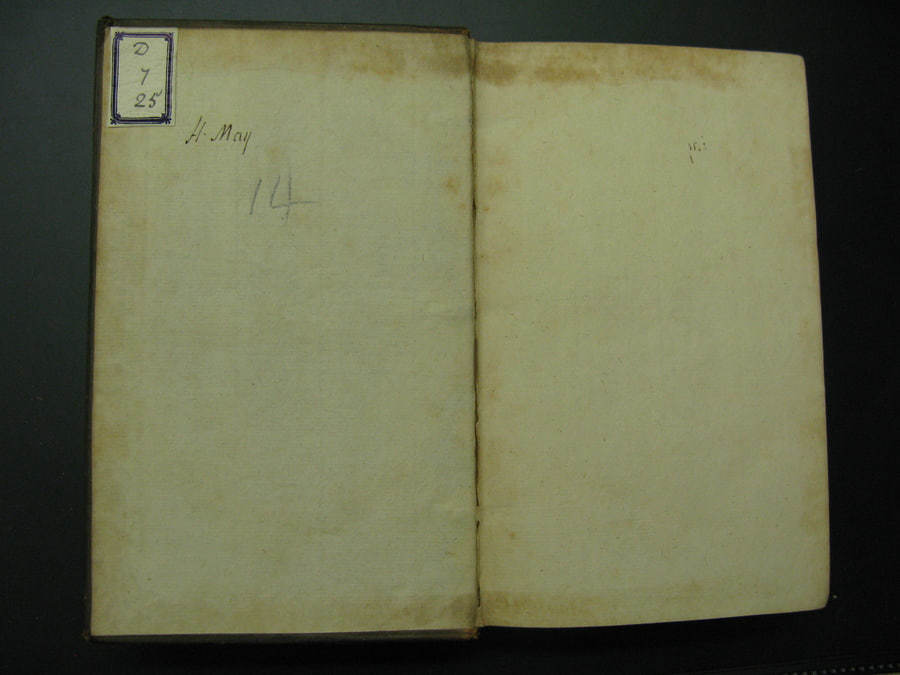 D
7
25
H. May
14